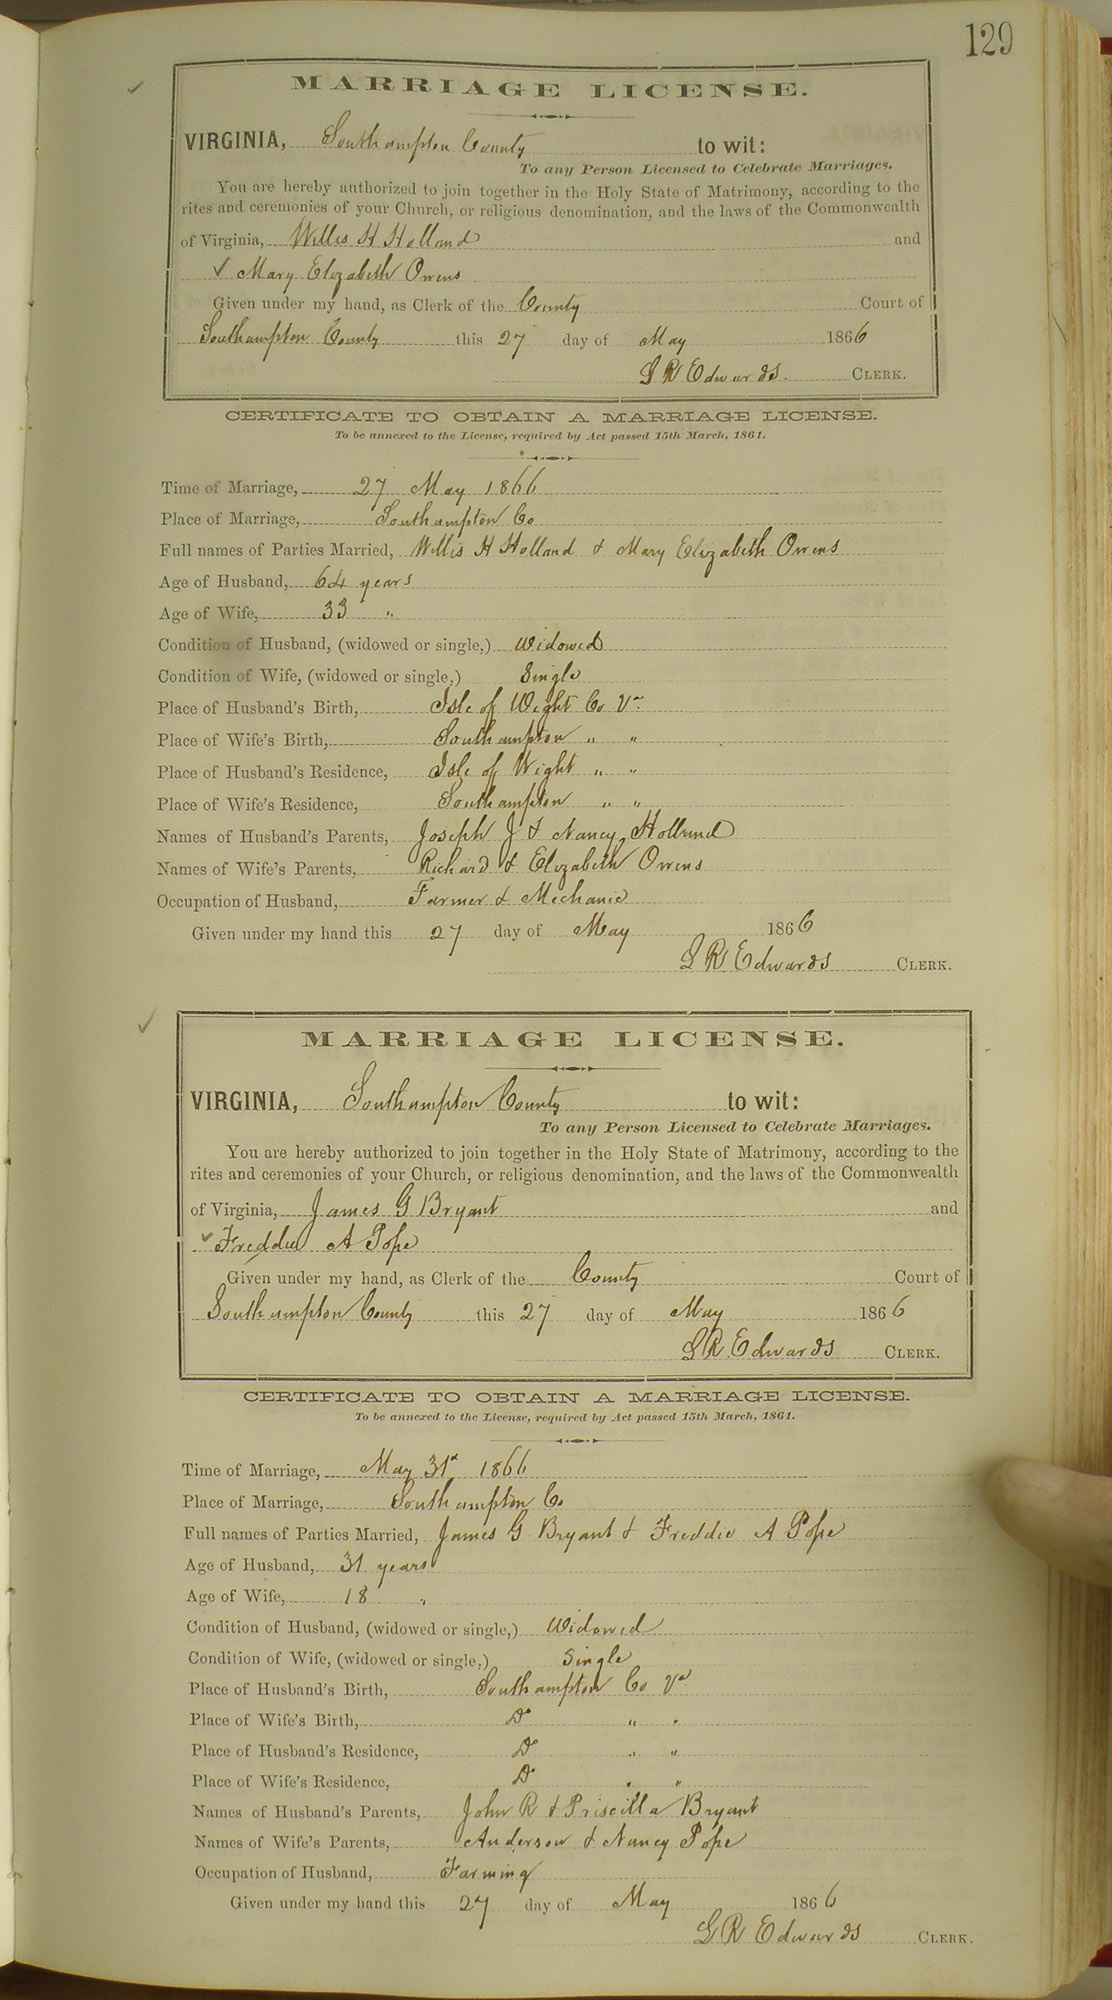 129
MARRIAGE LICENSE.
VIRGINIA, Southampton County to wit:
To any Person Licensed to Celebrate Marriages.
You are hereby authorized to join together in the Holy State of Matrimony, according to the
rites and ceremonies of your Church, or religious denomination, and the laws of the Commonwealth
of Virginia, Willis H Holland and
✓ Mary Elizabeth Owens
Given under my hand, as Clerk of the County Court of
Southampton County this 27 day of May 1866
L R Edwards. CLERK.
CERTIFICATE TO OBTAIN A MARRIAGE LICENSE.
To be annexed to the License, required by Act passed 15th March, 1861.
Time of Marriage, 27 May 1866
Place of Marriage, Southampton Co
Full names of Parties Married, Willis H Holland & Mary Elizabeth Owens
Age of Husband, 64 years
Age of Wife, 33 "
Condition of Husband, (widowed or single,) Widowed
Condition of Wife, (widowed or single,) Single
Place of Husband's Birth, Isle of Wight Co Va
Place of Wife's Birth, Southampton " "
Place of Husband's Residence, Isle of Wight " "
Place of Wife's Residence, Southampton " "
Names of Husband's Parents, Joseph J & Nancy Holland
Names of Wife's Parents, Richard & Elizabeth Owens
Occupation of Husband, Farmer & Mechanic
Given under my hand this 27 day of May 1866
L R Edwards CLERK.
MARRIAGE LICENSE.
VIRGINIA, Southampton County to wit:
To any Person Licensed to Celebrate Marriages.
You are hereby authorized to join together in the Holy State of Matrimony, according to the
rites and ceremonies of your Church, or religious denomination, and the laws of the Commonwealth
of Virginia, James G Bryant and
✓ Freddie A Pope
Given under my hand, as Clerk of the County Court of
Southampton County this 27 day of May 1866
L R Edwards CLERK.
CERTIFICATE TO OBTAIN A MARRIAGE LICENSE.
To be annexed to the License, required by Act passed 15th March, 1861.
Time of Marriage, May 31st 1866
Place of Marriage, Southampton Co
Full names of Parties Married, James G Bryant & Freddie A Pope
Age of Husband, 31 years
Age of Wife, 18 "
Condition of Husband, (widowed or single,) Widowed
Condition of Wife, (widowed or single,) Single
Place of Husband's Birth, Southampton Co Va
Place of Wife's Birth, Do " "
Place of Husband's Residence, Do " "
Place of Wife's Residence, Do " "
Names of Husband's Parents, John R & Priscilla Bryant
Names of Wife's Parents, Anderson & Nancy Pope
Occupation of Husband, Farming
Given under my hand this 27 day of May 1866
L R Edwards CLERK.